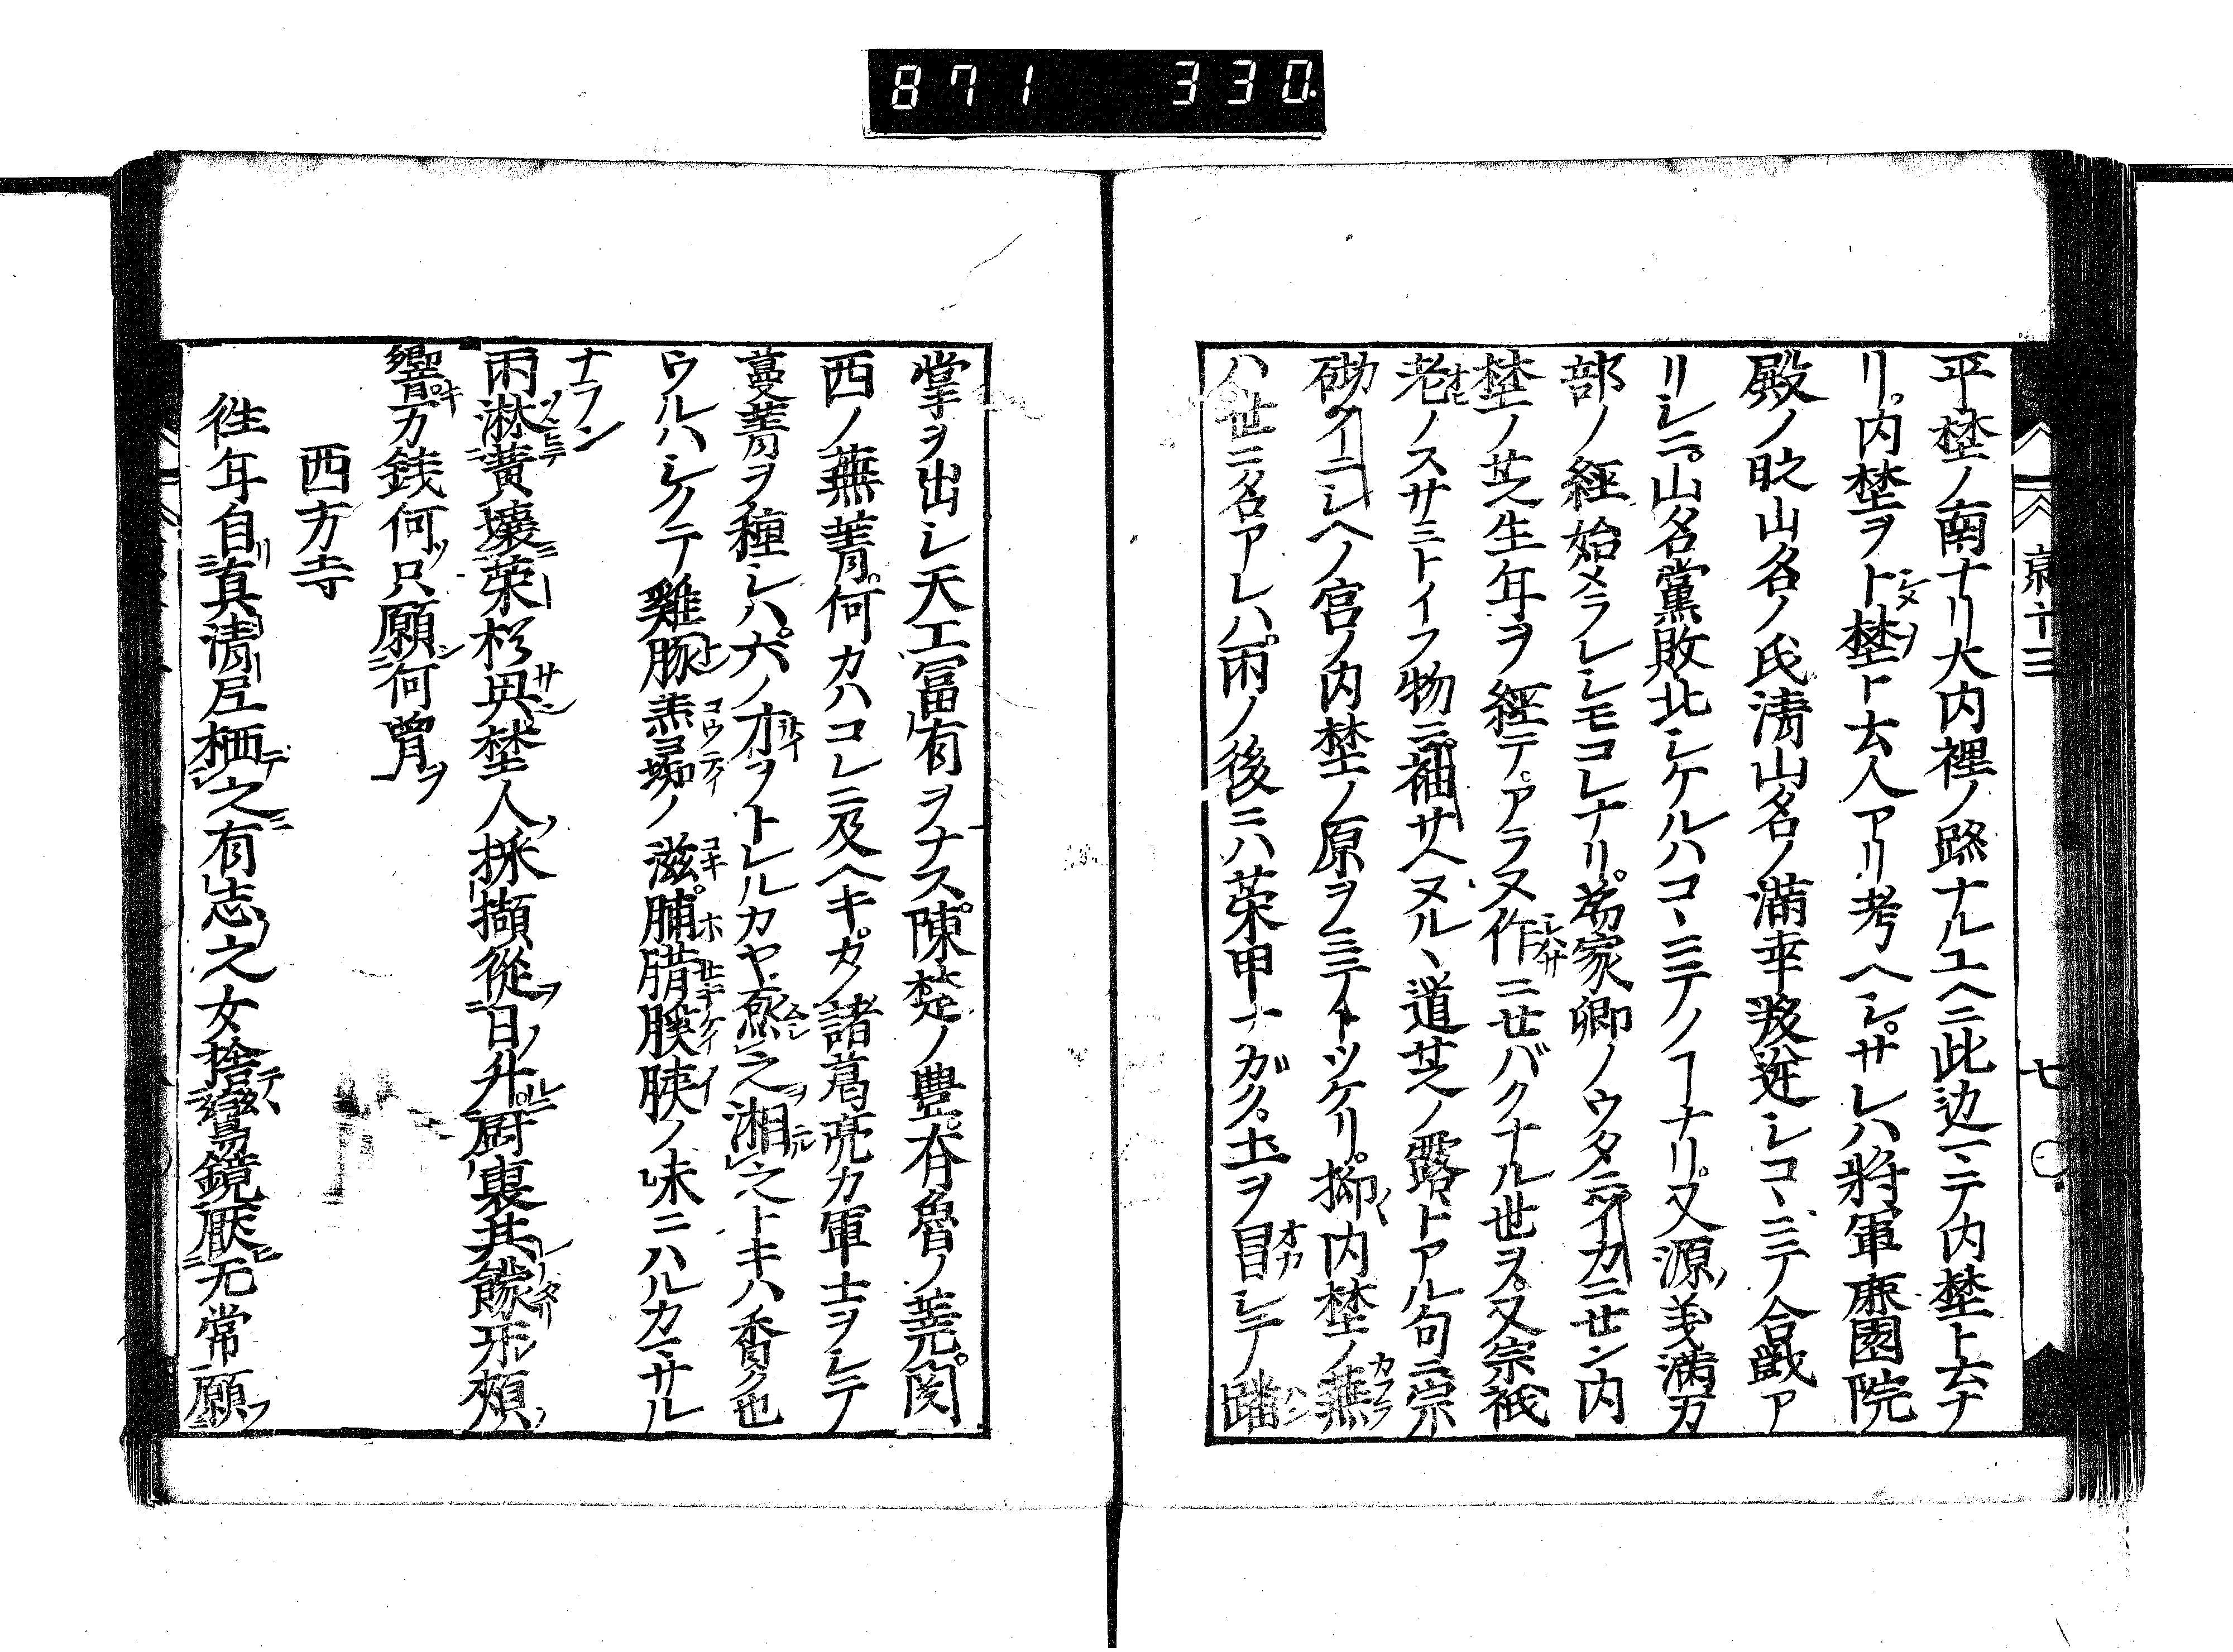 871 330
京十三 七
平埜ノ南ナリ大内裡ノ跡ナルユヘニ此辺ニテ内埜ト云ナ
リ内埜ヲト埜ト云人アリ考ヘシサレハ將軍鹿園院
殿ノ時山名ノ氏淸山名ノ滿幸叛逆シコヽニテノ合戰ア
リシニ山名黨敗北シケルハコヽニテノヿナリ又源ノ義滿万
部ノ經始メラレシモコレナリ為家卿ノウタニイカニセン内
埜ノ芝生年ヲ經テアラヌ作ニセバクナル世ヲ又宗祇
老ノスサミトイフ物ニ袖サヘヌルヽ道芝ノ露トアル句ニ宗
砌イニシヘノ宮ノ内埜ノ原ヲミテトツケリ抑内埜ノ蕪
ハ世ニ名アレハ雨ノ後ニハ菜甲ナガク土ヲ目シテノ蹯
掌ヲ出シ天工冨有ヲナス陳楚ノ豊齊魯ノ蕘関
西ノ蕪菁何カハコレニ及ヘキカノ諸葛亮カ軍士ヲシテ
蔓菁ヲ種シハ六ノ才ヲトレルカヤ烝之湘之トキハ香ク也
ウルハシクテ雞豚羔ノ滋脯腊膎胰ノ味ニハルカニサル
ナラン
雨淋黃壤菜杉肥埜人採擷從日升厨裏共餯形頰
響万銭何只願何曾ヲ
西方寺
往年自眞淸尼栖之有志之女捨鸞鏡厭无常願